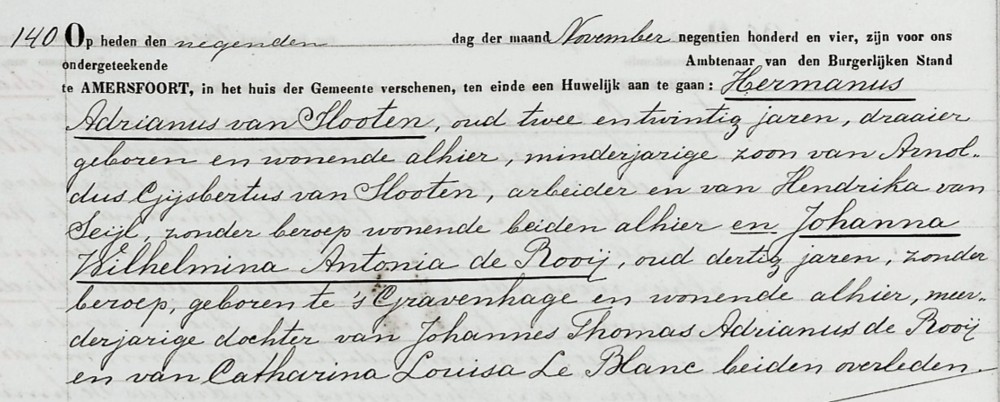 140 Op heden den negenden dag der maand November negentien honderd en vier, zijn voor ons
ondergeteekende Ambtenaar van den Burgerlijken Stand
te AMERSFOORT, in het huis der Gemeente verschenen, ten einde een Huwelijk aan te gaan: Hermanus
Adrianus van Slooten, oud twee en twintig jaren, draaier
geboren en wonende alhier, minderjarige zoon van Arnol-
dus Gijsbertus van Slooten, arbeider en van Hendrika van
Seijl, zonder beroep wonende beiden alhier en Johanna
Wilhelmina Antonia de Rooij, oud dertig jaren, zonder
beroep, geboren te 's Gravenhage en wonende alhier, meer-
derjarige dochter van Johannes Thomas Adrianus de Rooij
en van Catharina Louisa Le Blanc beiden overleden.